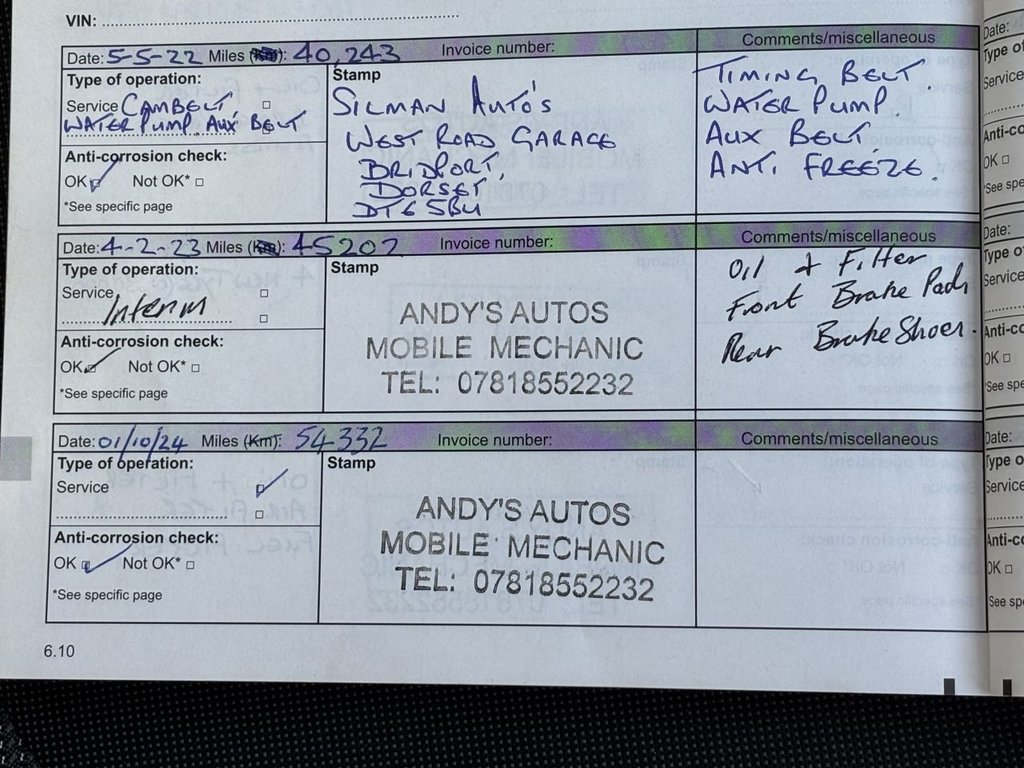 VIN:
Date: 5-5-22 Miles (Km): 40,243 Invoice number: Comments/miscellaneous
Type of operation:
Service CAMBELT,
WATER PUMP. AUX BELT
Anti-corrosion check:
OK Not OK*
*See specific page
Stamp
SILMAN AUTO'S
WEST ROAD GARAGE
BRIDPORT,
DORSET
DT6 5BU
TIMING BELT
WATER PUMP.
AUX BELT
ANTI FREEZE.
Date: 4-2-23 Miles (Km): 45202 Invoice number: Comments/miscellaneous
Type of operation:
Service
Interim
Anti-corrosion check:
OK Not OK*
*See specific page
Stamp
ANDY'S AUTOS
MOBILE MECHANIC
TEL: 07818552232
Oil + Filter
Front Brake Pads
Rear Brake Shoes.
Date: 01/10/24 Miles (Km): 54332 Invoice number: Comments/miscellaneous
Type of operation:
Service
Anti-corrosion check:
OK Not OK*
*See specific page
Stamp
ANDY'S AUTOS
MOBILE MECHANIC
TEL: 07818552232
6.10
Date:
Type o
Service
Anti-co
OK
*See spe
Date:
Type o
Service
Anti-co
OK
*See spe
Date:
Type o
Service
Anti-c
OK
*See spe